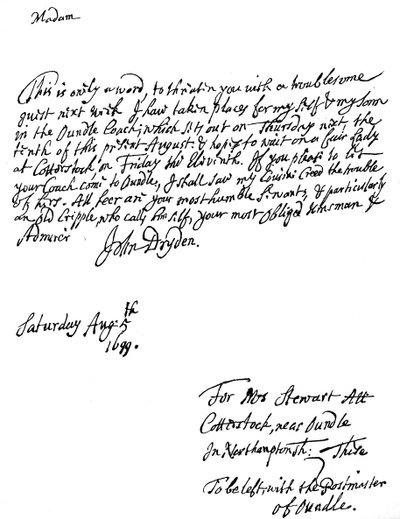 Madam
This is only a word, to threaten you with a troublesome
guest next week. I have taken places for my self & my sonn
in the Oundle Coach, which sets out on Thursday next the
tenth of this present August: & hope to wait on a fair Lady
at Cotterstock on Friday the Eleventh. If you please to let
your Coach come to Oundle, I shall save my Cousine Creed the trouble
of hers. All heer are your most humble Servants, & particularly
an old Cripple, who calls himself, your most obliged Kinsman &
Admirer
John Dryden.
Saturday Aug: 5th
1699.
For Mrs Stewart Att
Cotterstock, near Oundle
In Northamptonsh: These
To be left with the Postmaster
of Oundle.